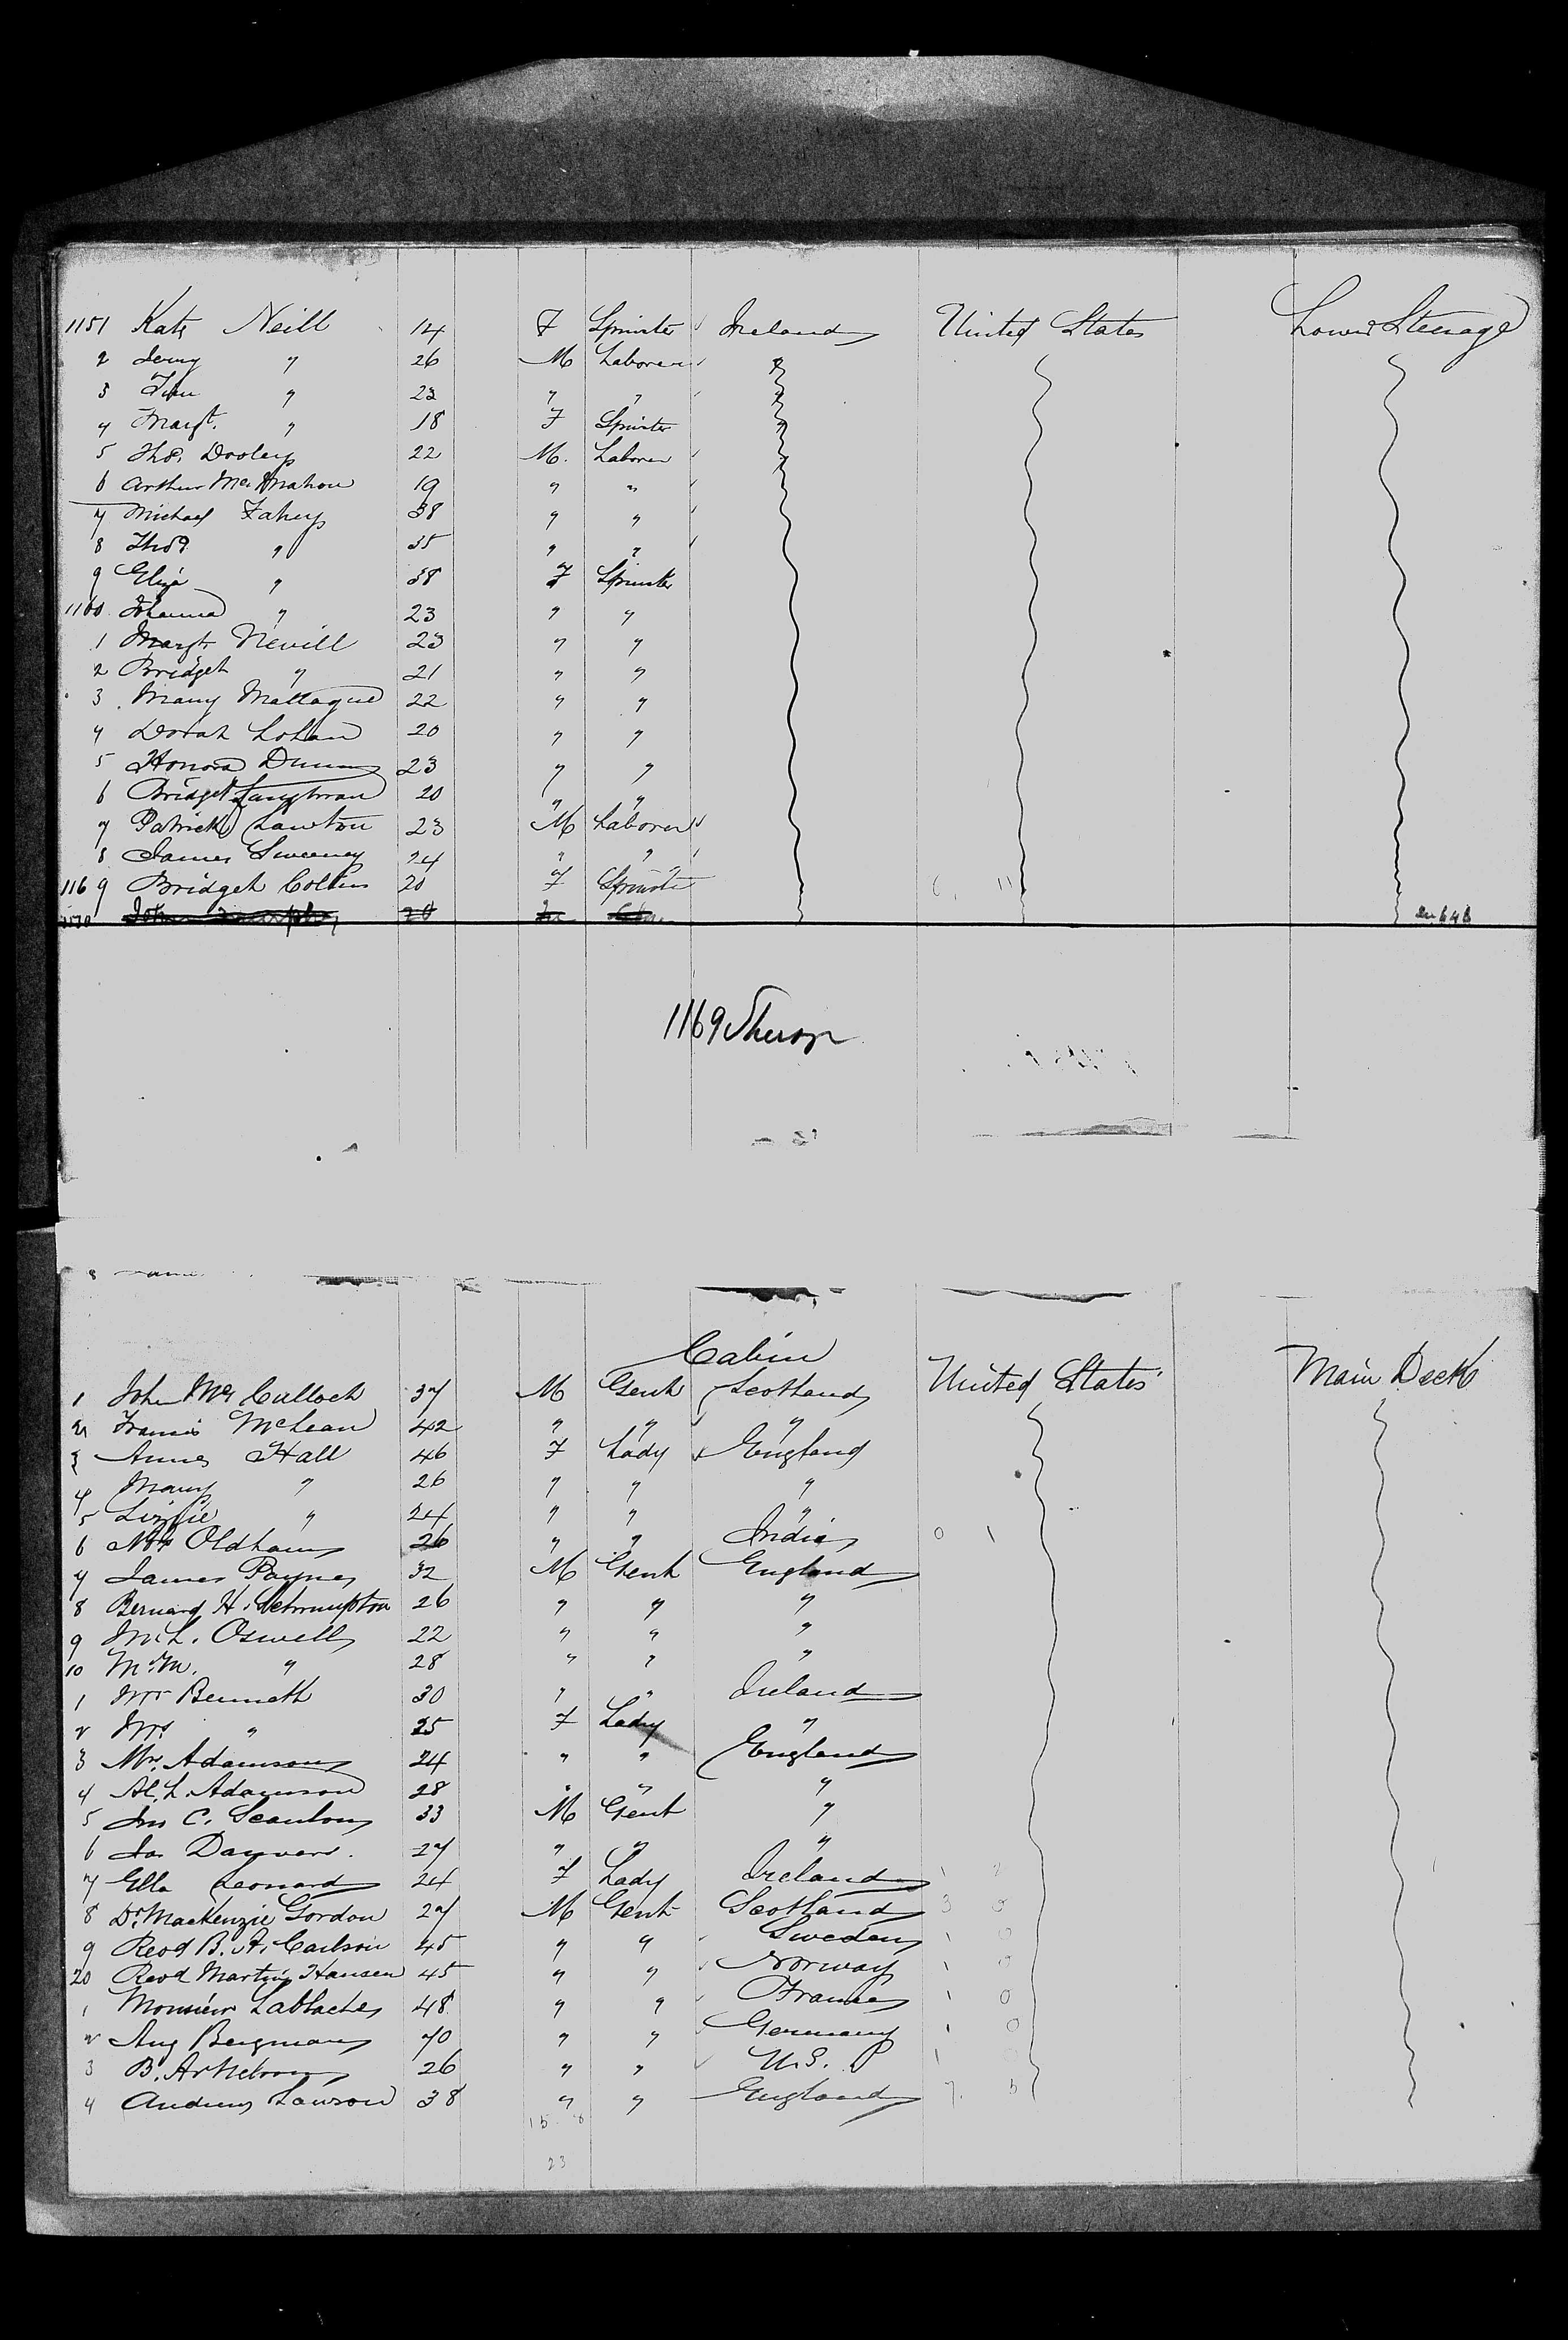 1151 Kate Neill 14 F Spinster Ireland United States Lower Steerage
2 Jerry " 26 M Laborer "
3 Tim " 23 " " "
4 Margt. " 18 F Spinster "
5 Thos. Dooley 22 M. Laborer "
6 Arthur McMahon 19 " "
7 Michael Fahey 38 " "
8 Thos " 35 " "
9 Eliza " 38 F Spinster
1160 Johanna " 23 " "
1 Margt Nevill 23 " "
2 Bridget " 21 " "
3 Mary Mattague 22 " "
4 Dorah Lohan 20 " "
5 Honora Dunn 23 " "
6 Bridget 20 " "
7 Patrick Lawton 23 M Laborer
8 James Sweeney 24 " "
1169 Bridget Collins 20 F Spinster
John Murphy 20
1169
Cabin
1 John McCulloch 37 M Gent Scotland United States Main Deck
2 Francis McLean 42 " " "
3 Annes Hall 46 F Lady England
4 Mary " 26 " " "
5 Lizzie " 24 " " "
6 Mrs Oldham 26 " " India 0 1
7 James Payne 32 M Gent England
8 Bernard H. Schrumpton 26 " " "
9 M. L. Oswell 22 " " "
10 M. M. " 28 " " "
1 Mr Bennett 30 " " Ireland
2 Mrs " 25 F Lady "
3 Mrs. Adamson 24 " " England
4 Al. L. Adamson 28 " " "
5 Jno C. Scanlon 33 M Gent "
6 Jas Danvers. 27 " " "
7 Ella Leonard 24 F Lady Ireland
8 Dr. MacKenzie Gordon 27 M Gent Scotland 3 0
9 Revd B. A. Carlson 45 " " Sweden 1 0
20 Revd Martin Hansen 45 " " Norway 1 0
1 Monsieur Lablache 48 " " France 1 0
2 Aug Bergman 70 " " Germany 1 0
3 B. 26 " " U.S. 1
4 Andrew Lawson 38 " " England 7. 5
15 8
23